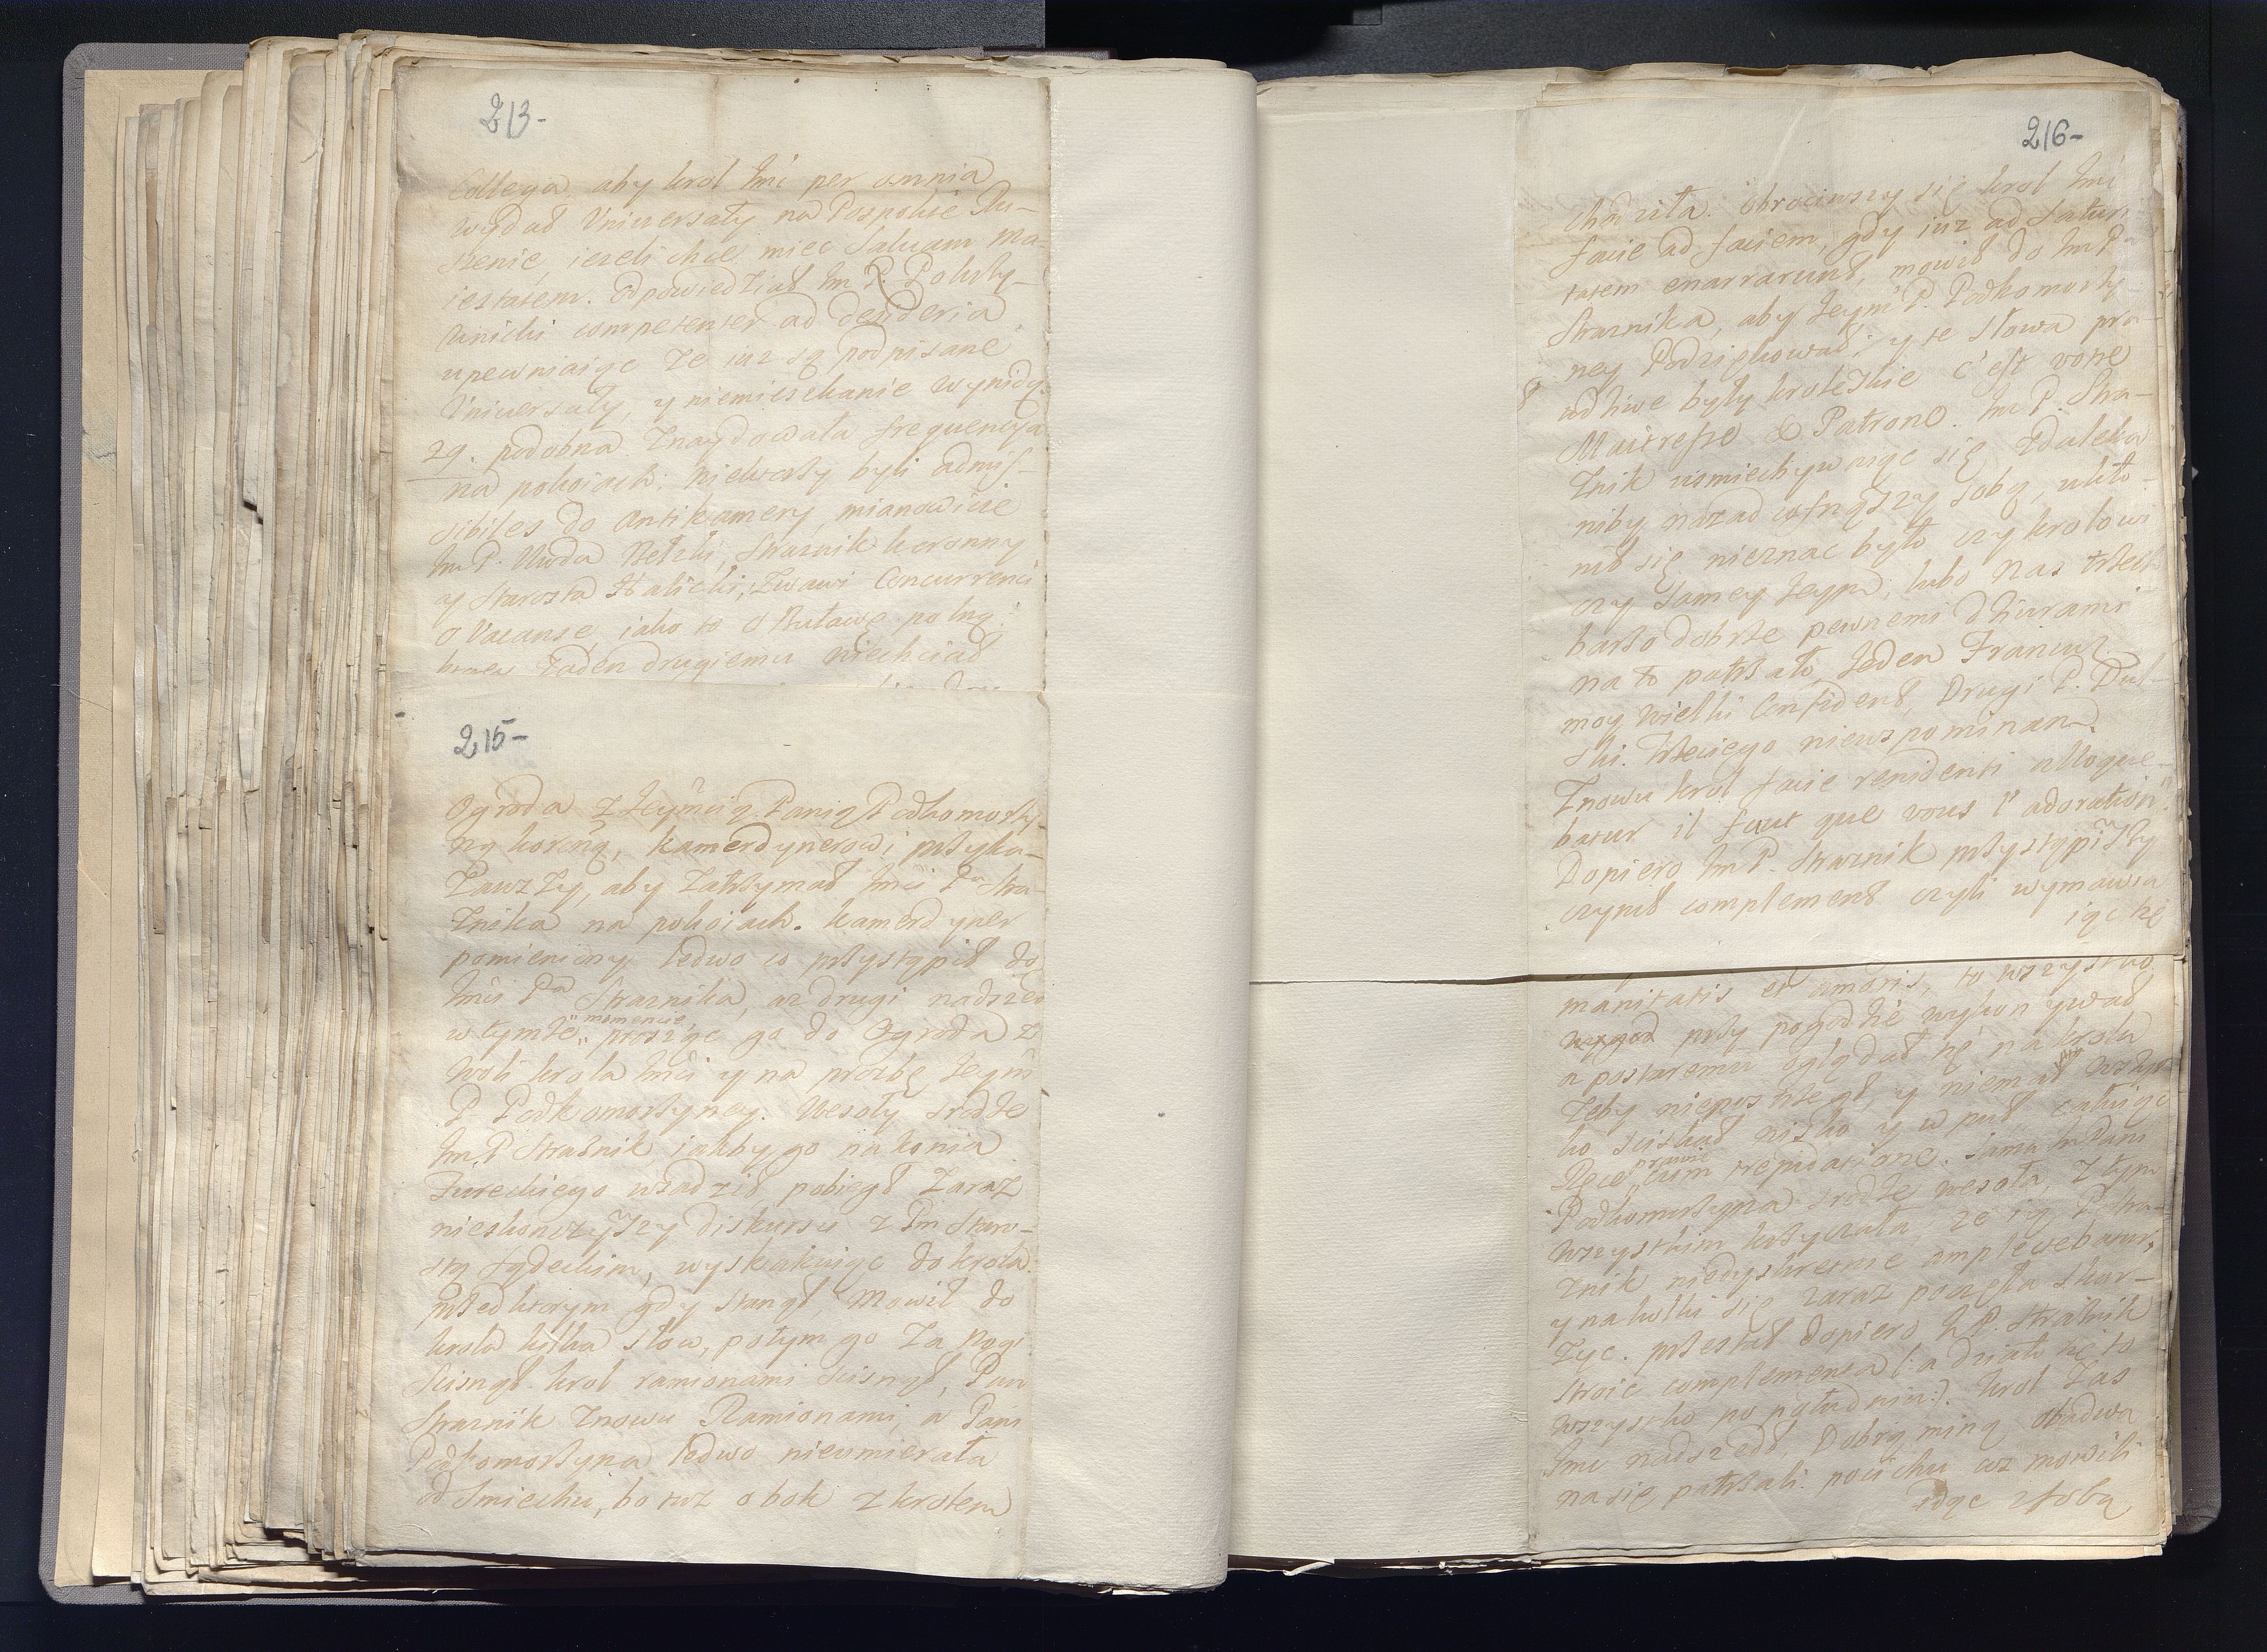 213-
Collega, aby krol Jmć per omnia
wydał Vniwersały na Pospolite Ru-
szenie, ieżeli chce miec Salvam Ma-
iestatem. Odpowiedział Im P. Podsky-
competenter ad desideria
upewniaiąc że iuz są podpisane
Vniwersały, y niemieszkanie wynidą.
29. podobna znaydowała frequencya
na pokoiach: niektorzy byli admis-
sibiles do Antikamery, mianowicie
Im P. Wwda Bełzki, Straznik koronny
y Starosta Halicki, Concurrenci
o Vacanse, iako to o Buławę polną:
żaden drugiemu niechciał
215-
Ogroda z Jeymcią Panią Podkomorzy-
ną korōną, kamerdynerowi przyka-
zawszy, aby zatrzymał Jmci Pa Stra-
żnika na pokoiach. Kamerdyner
pomieniony ledwo co przystąpił do
Jmci Pa Straznika, az drugi nadszed
w tymże momencie prosząc go do Ogroda z
woli krola Jmci y na prozbę Jeym
P. Podkomorzyney. Wesoły srodze
Im P. Strażnik, iakby go na konia
Tureckiego wsadził, pobiegł zaraz
nieskonczywszy diskursu z Pm Staro-
stą Sądeckim, wyskakuiąc do krola.
przed ktorym gdy stanął, mowił do
krola kilka słow, potym go za nogi
scisnął. krol ramionami scisnął, Pan
Straznik znowu Ramionami, a Pani
Podkomorzyna ledwo nieumierała
od smiechu, bo tuz obok z krolem
216-
chodziła. Obrociwszy się krol Jmć
facie ad faciem, gdy iuz ad satur-
tatem enarrarunt, mowił do Im Pa
Straznika, aby Jeym P. Podkomorzy-
ney Podziękował; y te słowa pra-
wdziwe były krolewskie c'est votre
Maitresse & Patrone. Im P. Stra-
żnik usmiechywaiąc się zdaleka
niby nazad cofnąwszy soby, ukło-
nił się nieznac było czy krolowi
czy samey Jeym, lubo nas trzech
barzo dobrze pewnemi dziurami
na to patrzało, Jeden Francuz
moy wielki Confident, Drugi P. Dul-
ski. Trzeciego niewspominam.
Znowu krol facie renidenti alloque-
batur il faut que vous l'adoration.
Dopiero Im P. Straznik przystąpiwszy
czynił complement czyli wymawia
iąc się
manitatis et amoris, to wszystko
przy pogodzie wykonywał
a postaremu oglądał się na krola
żeby niepostrzegł, y niemal wszyt-
ko sciskał nisko y w puł całuiąc
Ręce prawie cum trepidatione. Sama Im Pani
Podkomorzyna srodze wesoła, z tym
wszystkim krzyczała, ze ią P. Stra-
znik niedyskretnie amplectebatur,
y na kolki się zaraz poczęła skar-
życ. przestał dopiero Im P. Strażnik
stroic complementa (: a działo się to
wszystko po południu:). krol zas
Jmc nadszedł. Dobrą miną obadwa
na się patrzali. pocichu cos mowili
idąc z sobą